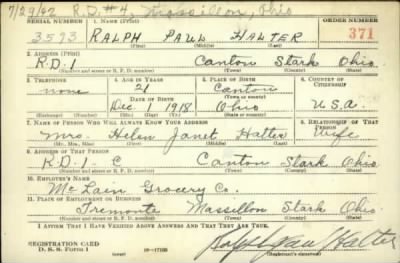 7/29/42 R.D. #4, Massillon, Ohio
SERIAL NUMBER 1. NAME (Print) ORDER NUMBER
3593 RALPH PAUL HALTER 371
(First) (Middle) (Last)
2. ADDRESS (Print)
R.D. 1 Canton Stark Ohio
(Number and street or R. F. D. number) (Town) (County) (State)
3. TELEPHONE 4. AGE IN YEARS 5. PLACE OF BIRTH 6. COUNTRY OF CITIZENSHIP
none 21 Canton
DATE OF BIRTH (Town or county)
Dec 1 1918 Ohio U.S.A.
(Exchange) (Number) (Mo.) (Day) (Yr.) (State or country)
7. NAME OF PERSON WHO WILL ALWAYS KNOW YOUR ADDRESS 8. RELATIONSHIP OF THAT PERSON
Mrs. Helen Janet Halter Wife
(Mr., Mrs., Miss) (First) (Middle) (Last)
9. ADDRESS OF THAT PERSON
R.D. 1 - C Canton Stark Ohio
(Number and street or R. F. D. number) (Town) (County) (State)
10. EMPLOYER'S NAME
McLain Grocery Co.
11. PLACE OF EMPLOYMENT OR BUSINESS
Tremonte Massillon Stark Ohio
(Number and street or R. F. D. number) (Town) (County) (State)
I AFFIRM THAT I HAVE VERIFIED ABOVE ANSWERS AND THAT THEY ARE TRUE.
REGISTRATION CARD
D. S. S. FORM 1 Ralph Paul Halter
(Registrant's signature)